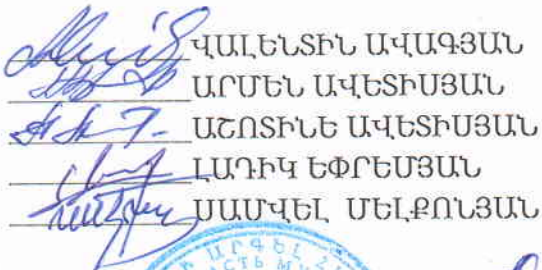 ՎԱԼԵՆՏԻՆ ԱՎԱԳՅԱՆ
ԱՐՄԵՆ ԱՎԵՏԻՍՅԱՆ
ԱՇՈՏԻՆԵ ԱՎԵՏԻՍՅԱՆ
ԼԱԴԻԿ ԵՓՐԵՄՅԱՆ
ՍԱՄՎԵԼ ՄԵԼՔՈՆՅԱՆ